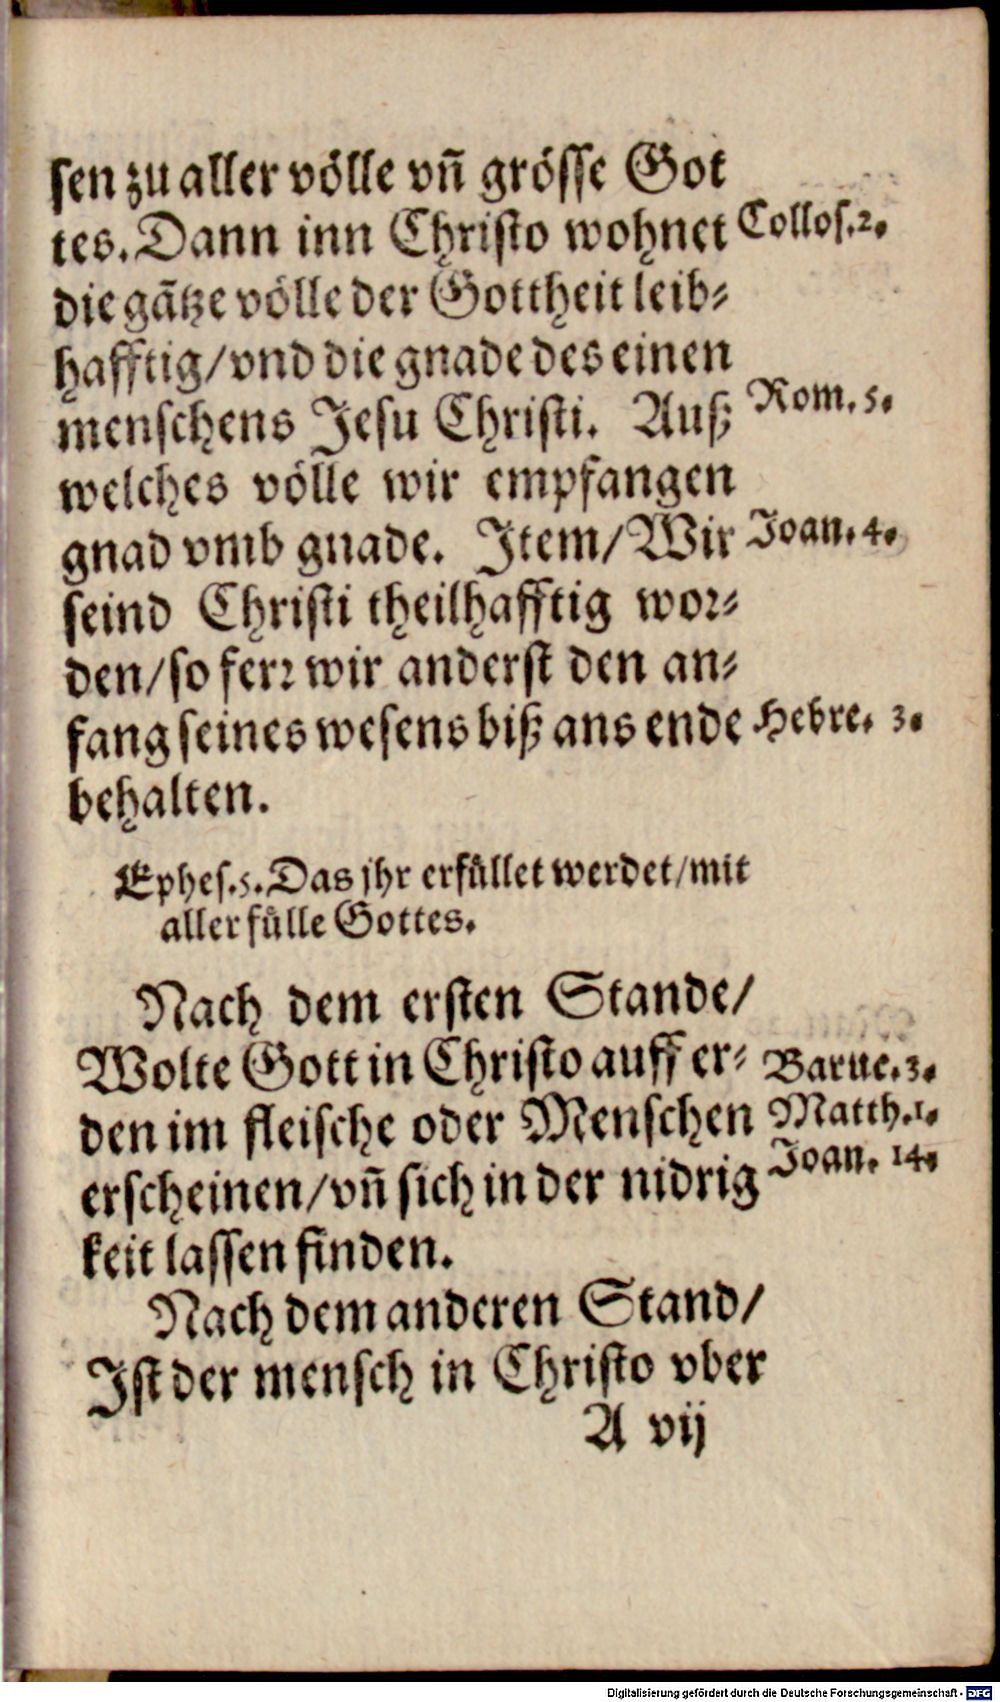 sen zu aller völle vñ grösse Got
tes. Dann inn Christo wohnet Collos. 2.
die gãtze völle der Gottheit leib⸗
hafftig/ vnd die gnade des einen
menschens Jesu Christi. Auß Rom. 5.
welches völle wir empfangen
gnad vmb gnade. Item/ Wir Joan. 4.
seind Christi theilhafftig wor⸗
den/ so ferr wir anderst den an⸗
fang seines wesens biß ans ende Hebre. 3.
behalten.
Ephes. 5. Das jhr erfüllet werdet/ mit
aller fülle Gottes.
Nach dem ersten Stande/
Wolte Gott in Christo auff er⸗ Baruc. 3.
den im fleische oder Menschen Matth. 1.
erscheinen/ vñ sich in der nidrig Joan. 14.
keit lassen finden.
Nach dem anderen Stand/
Ist der mensch in Christo vber
A vij
Digitalisierung gefördert durch die Deutsche Forschungsgemeinschaft - DFG